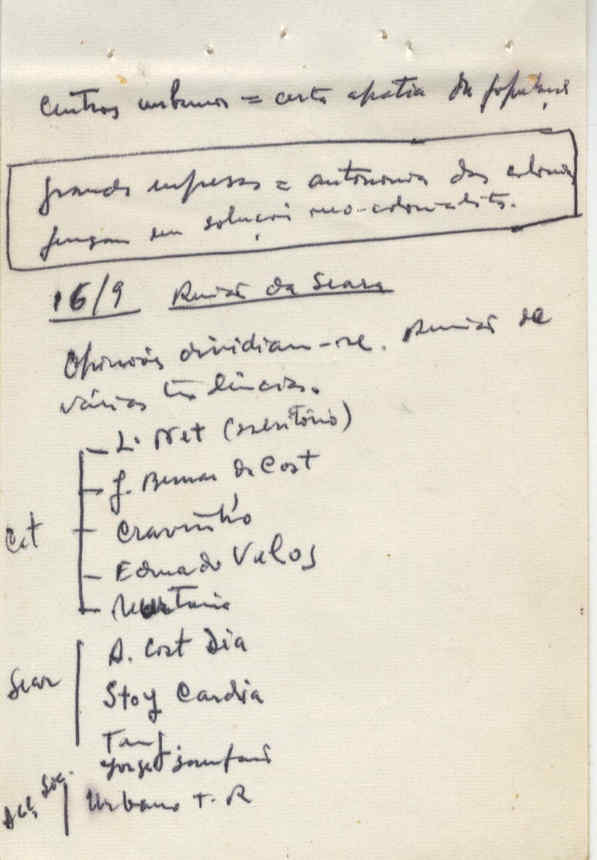 centros urbanos = certa apatia da
grandes empresas = autonomia das colonias
jungam seu solução neo-colonialista.
16/9 Reunião da Seara
Opiniões dividiam-se. Reunião de
várias tendências.
L. Net (escritório)
J. Benar da Cost
Cravinho
Cat
Eduardo Velos
A. Cost Dia
Seara
Stoy Cardia
Jorge Sampaio
Acç. Soc.
Urbano T. R